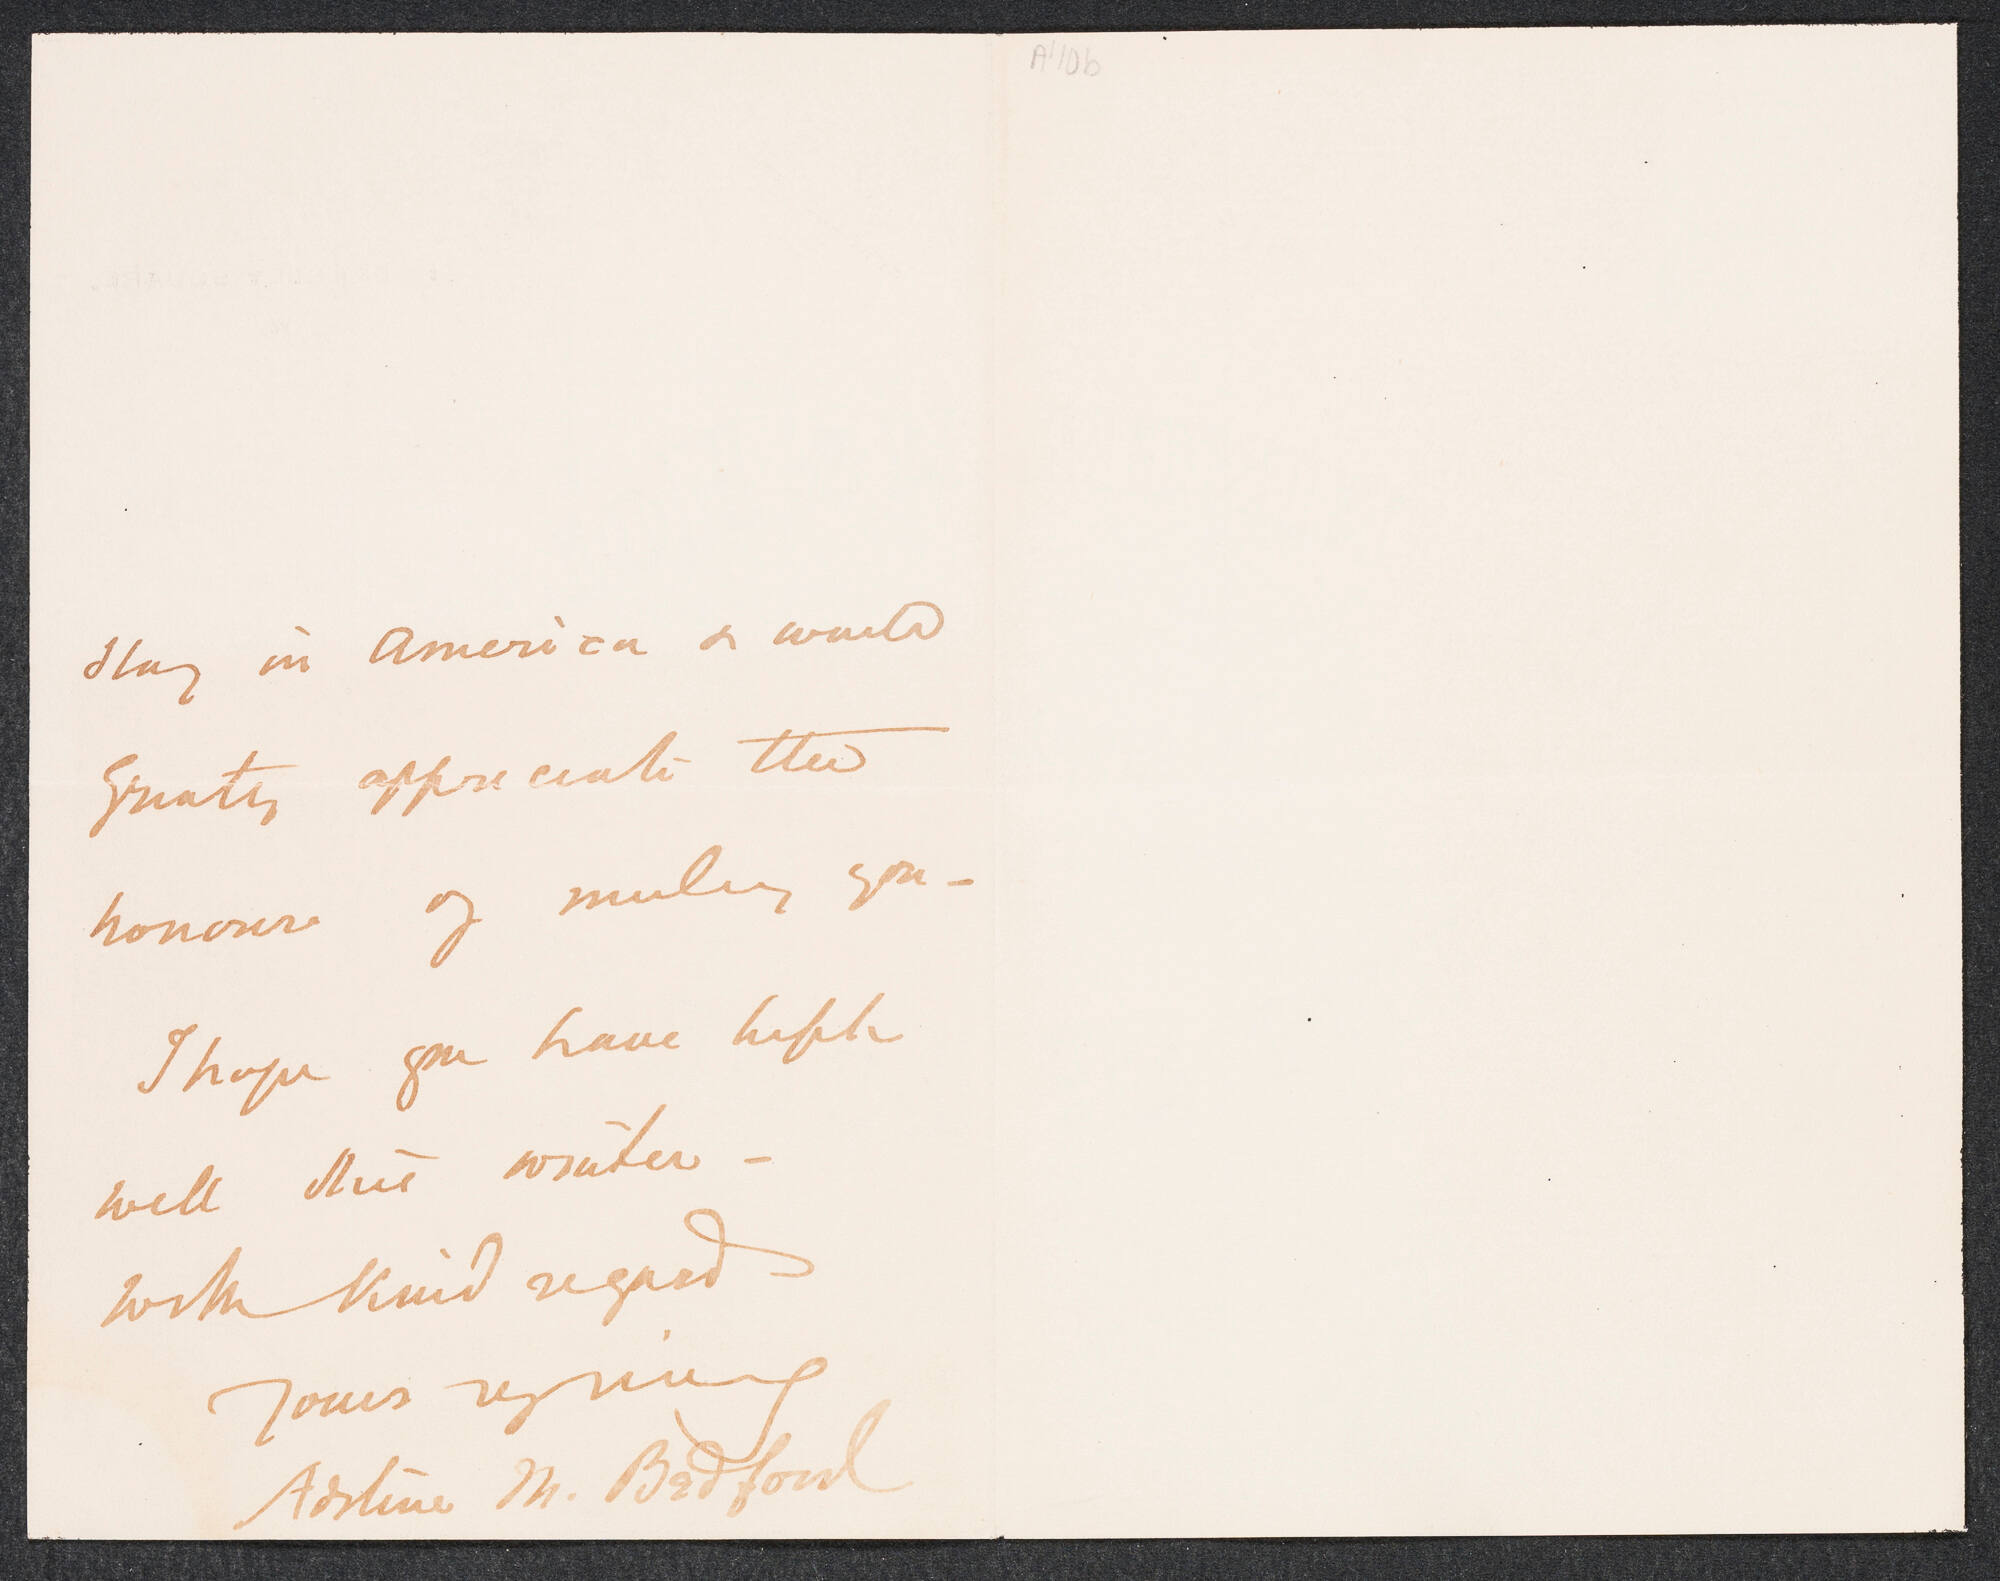 stay in America & would
greatly appreciate the
honour of meeting you -
I hope you have kept
well this winter -
With kind regards
Yours sincerely
Adeline M. Bedford
A110b